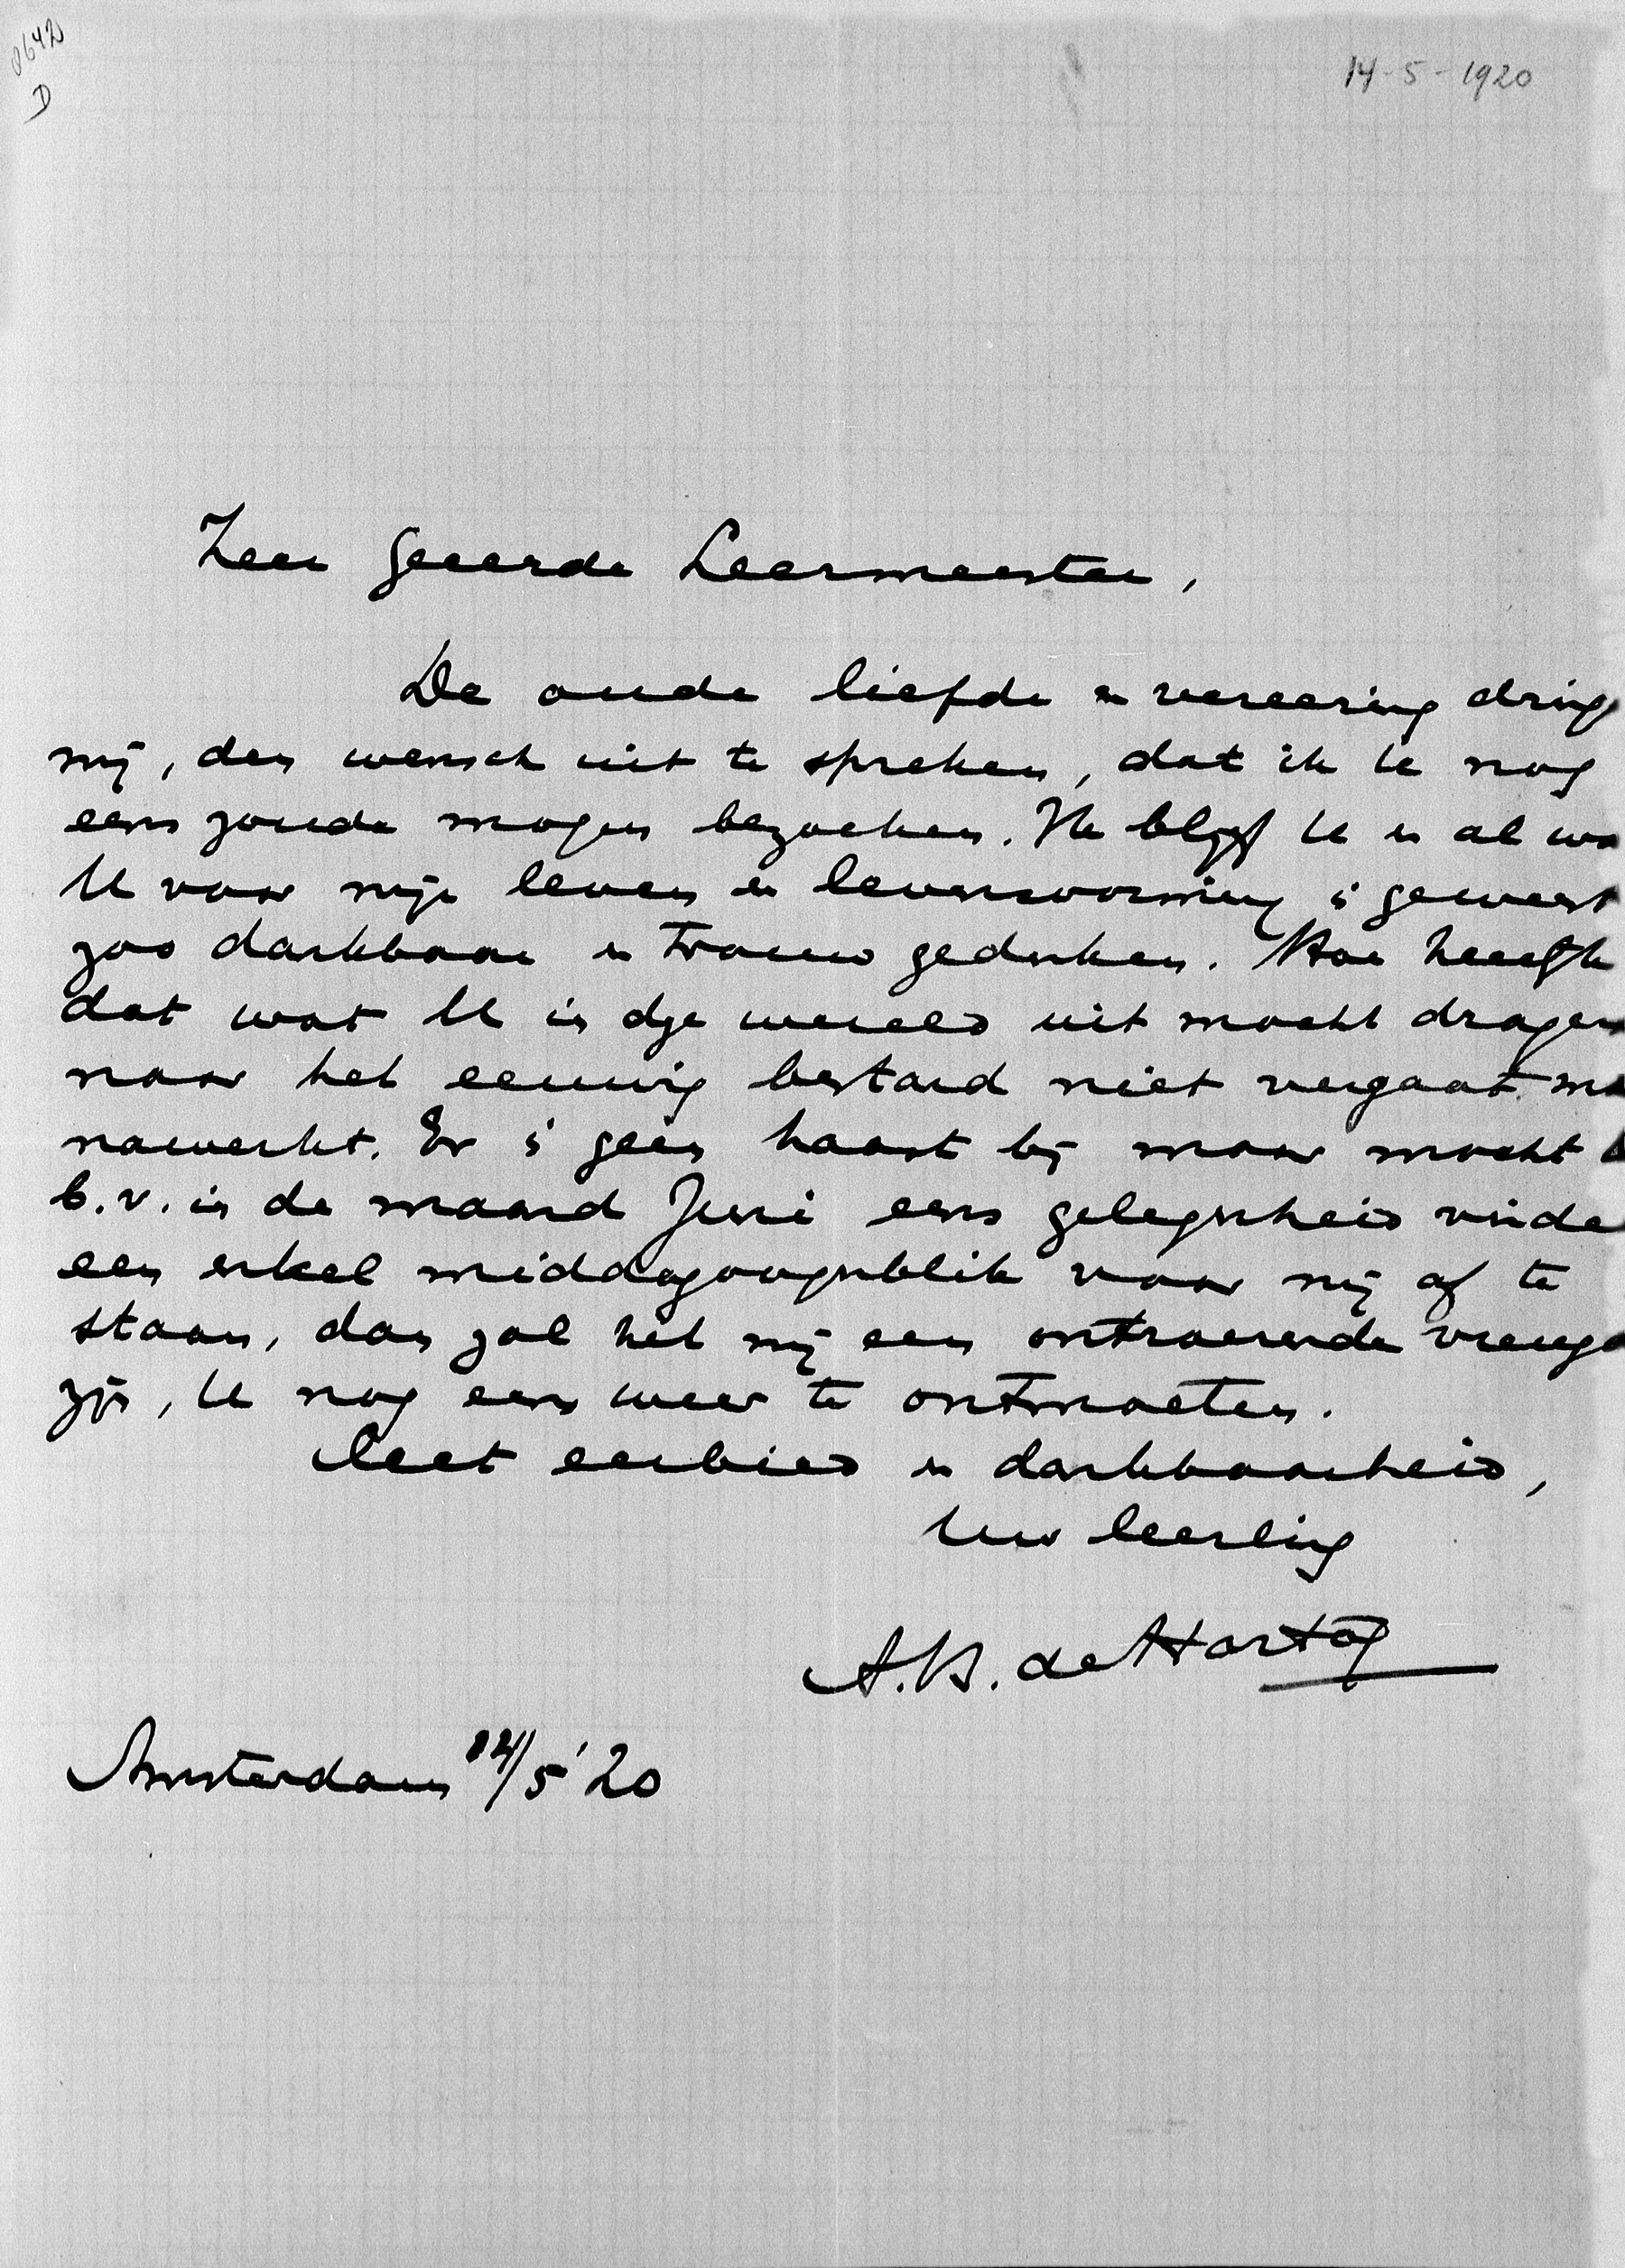 0642
D
14-5-1920
Zeer Geeerde Leermeester,
De oude liefde en vereering dring
mij, den wensch uit te spreken, dat ik U nog
eens zoude mogen bezoeken. Ik blijf U en al wa
U voor mijn leven en levensvorming is geweest
zoo dankbaar en trouw gedenken. Hoe heerlijk
dat wat U in deze wereld uit mocht dragen
naar het eeuwig bestand niet vergaat ma
nawerkt. Er is geen haast bij maar mocht U
b.v. in de maand Juni eens gelegenheid vinde
een enkel middagoogenblik voor mij af te
staan, dan zal het mij een ontroerende vreugd
zijn, U nog eens weer te ontmoeten.
Met eerbied en dankbaarheid,
Uw leerling
A.H. de Hartog
Amsterdam 14/5 '20